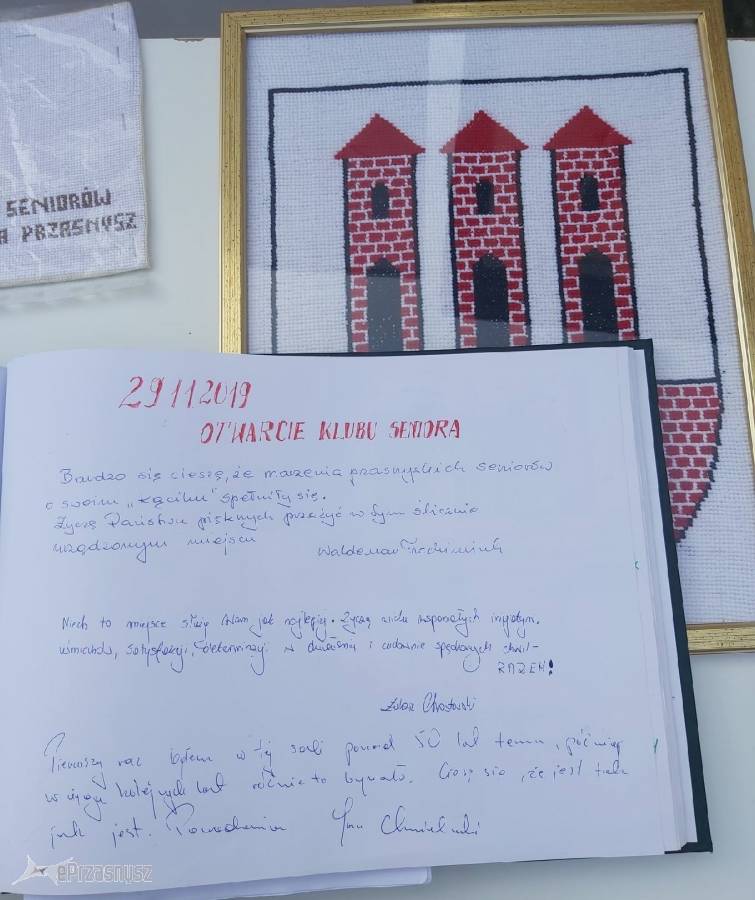 SENIORÓW
A PRZASNYSZ
29 11 2019
OTWARCIE KLUBU SENIORA
Bardzo się cieszę, że marzenia przasnyskich seniorów
o swoim „kąciku" spełniły się.
Życzę Państwu pięknych przeżyć w tym ślicznie
urządzonym miejscu
Waldemar
Niech to miejsce służy Wam jak najlepiej. Życzę wielu wspaniałych inicjatyw,
uśmiechu, satysfakcji, determinacji w działaniu i cudownie spędzonych chwil -
RAZEM!
Łukasz Chrostowski
Pierwszy raz byłem w tej sali ponad 50 lat temu, później
w ciągu kolejnych lat różnie to bywało. Cieszę się, że jest tak
jak jest. Powodzenia
ePrzasnysz